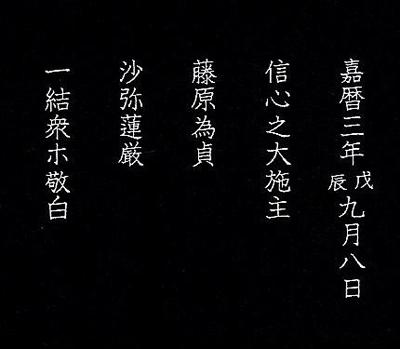 嘉暦三年戊辰九月八日
信心之大施主
藤原為貞
沙弥蓮厳
一結衆ホ敬白